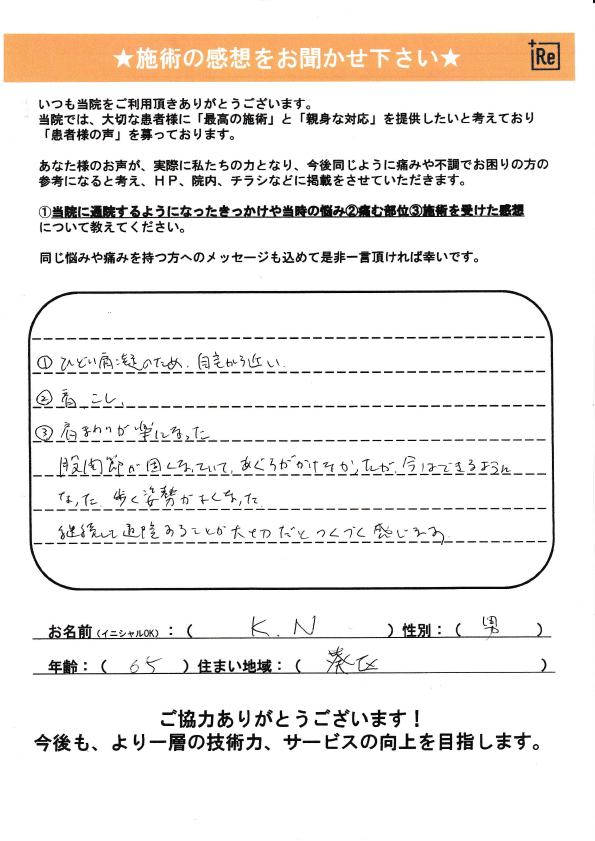 ★施術の感想をお聞かせ下さい★
+Re
いつも当院をご利用頂きありがとうございます。
当院では、大切な患者様に「最高の施術」と「親身な対応」を提供したいと考えており
「患者様の声」を募っております。
あなた様のお声が、実際に私たちの力となり、今後同じように痛みや不調でお困りの方の
参考になると考え、HP、院内、チラシなどに掲載をさせていただきます。
①当院に通院するようになったきっかけや当時の悩み②痛む部位③施術を受けた感想
について教えてください。
同じ悩みや痛みを持つ方へのメッセージも込めて是非一言頂ければ幸いです。
① ひどい肩凝のため、自宅から近い
② 肩こし、
③ 肩まわりが楽になった
股関節が固くなっていて、あぐらがかけなかったが、今はできるように
なった 歩く姿勢がよくなった
継続して通院することが大切だとつくづく感じます。
お名前(イニシャルOK):( K.N )性別:( 男 )
年齢:( 65 )住まい地域:( 湊区 )
ご協力ありがとうございます!
今後も、より一層の技術力、サービスの向上を目指します。